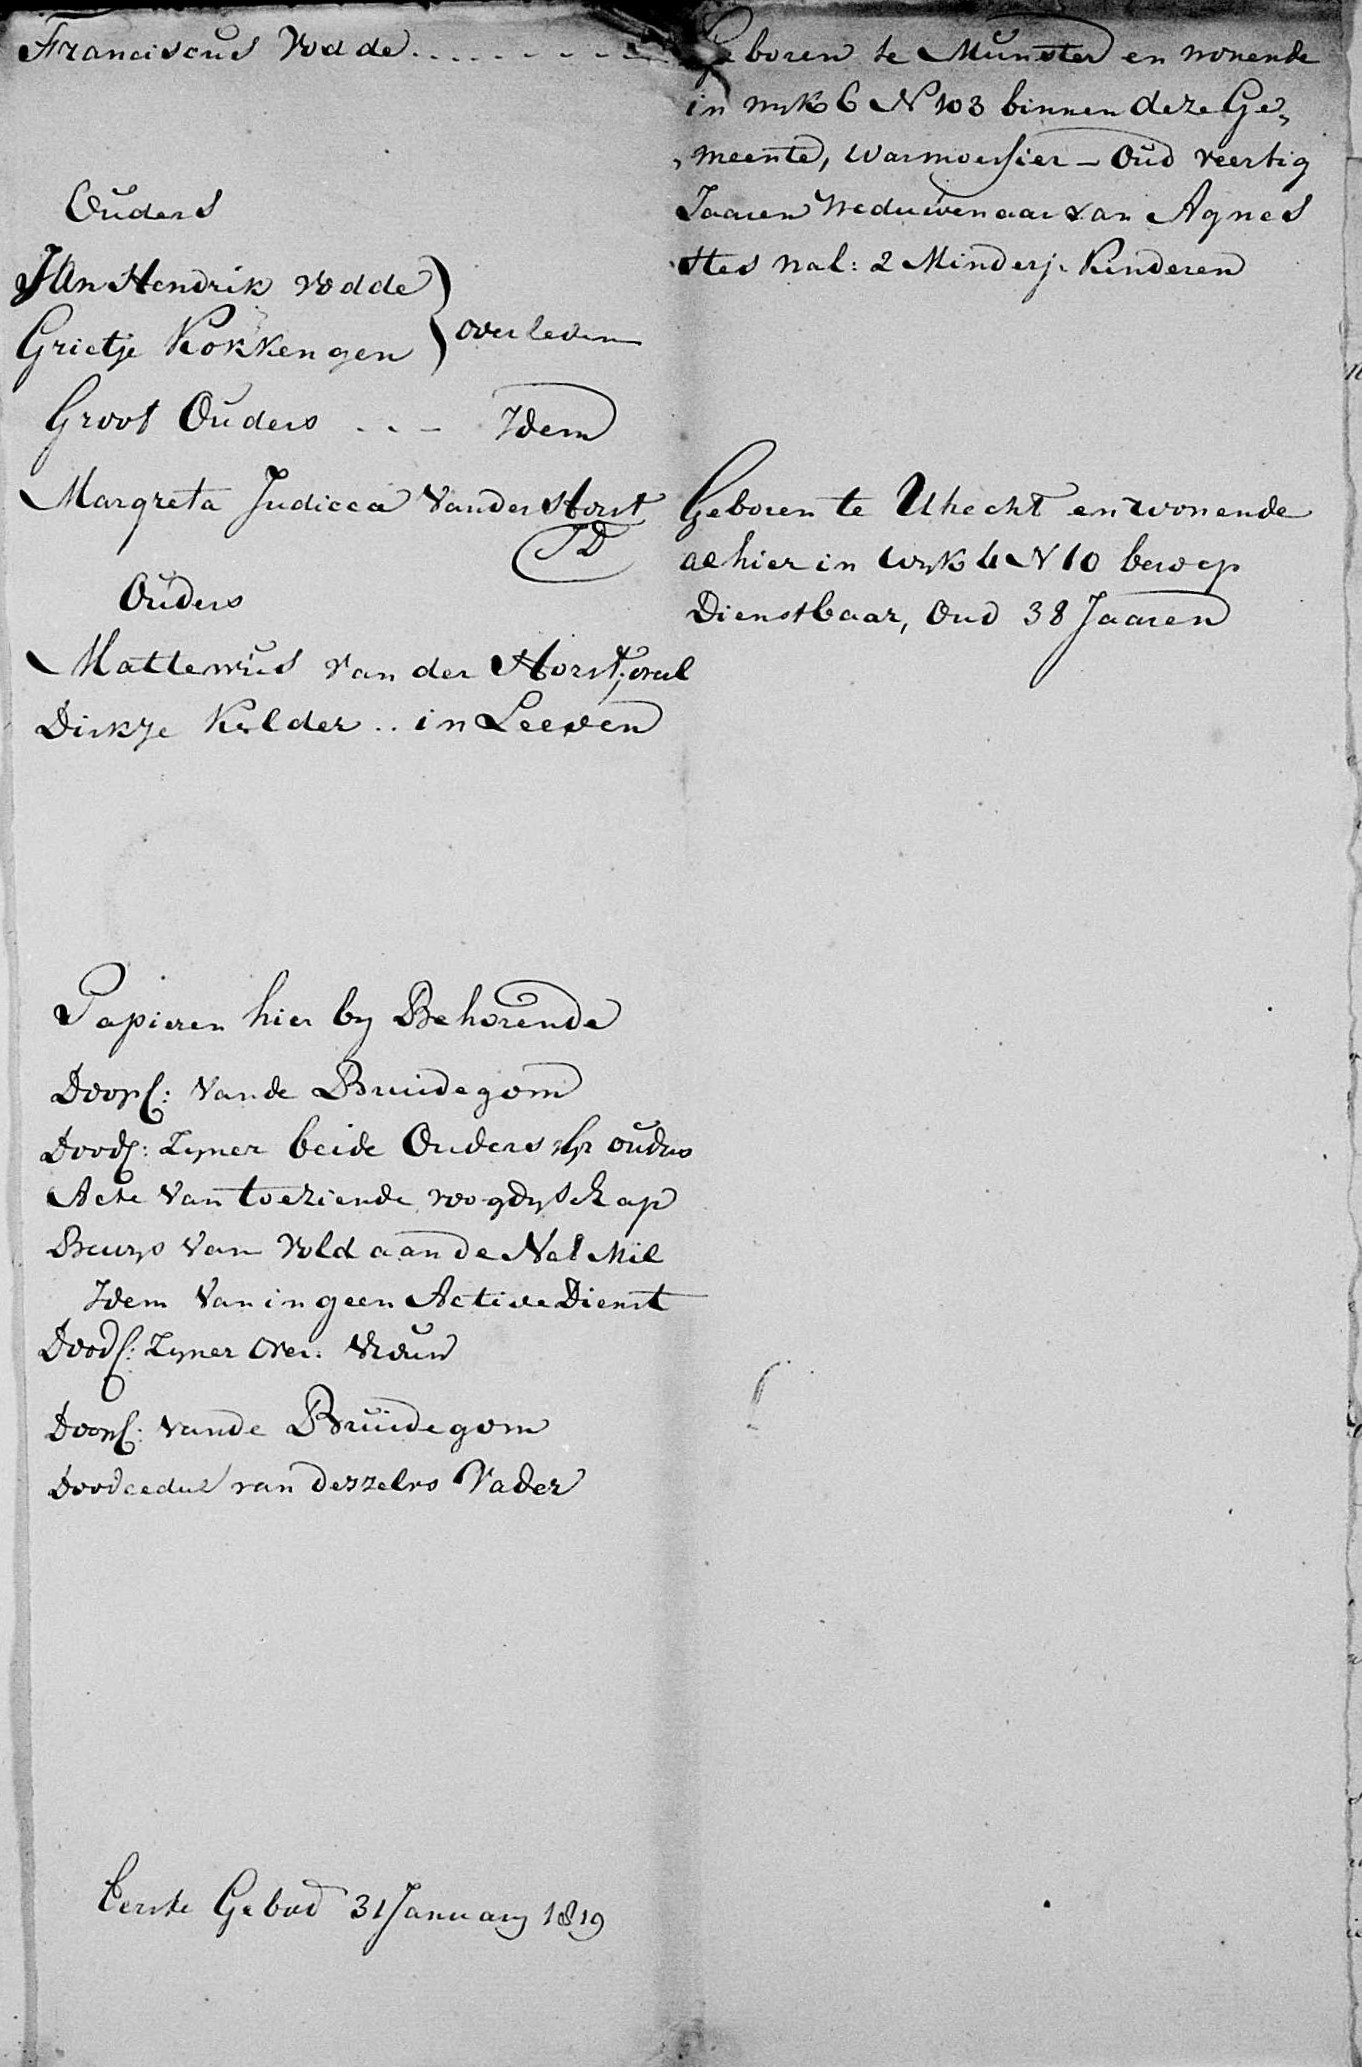 Franciscus Vodde
Geboren te Munster en wonende
in wyk 6 N 103 binnen deze Ge„
„meente, Warmoesier - Oud veertig
Jaaren Weduwenaar van Agnes
Stes nal: 2 Minderj. Kinderen
Ouders
Jan Hendrik Vodde
Grietje Kokkengen
overleden
Groot Ouders - - - Idem
Margreta Judicca Vander Horst
JD
Geboren te Utrecht en wonende
alhier in wyk 4 N 10 beroep
Dienstbaar, Oud 38 Jaaren
Ouders
Mattewus van der Horst
Dirkje Kelder .. in Leeven
Papieren hier by Behorende
Doopc: vande Bruidegom
Doodc: Zyner beide Ouders ouders
Acte van toeziende voogdyschap
Bewys van Vold aan de Nat Mil
Idem van in geen Active Dienst
Doodc: Zyner over. Vrouw
Doopc: vande Bruidegom
Doodcedul van deszelvs Vader
Eerste Gebod 31 January 1819